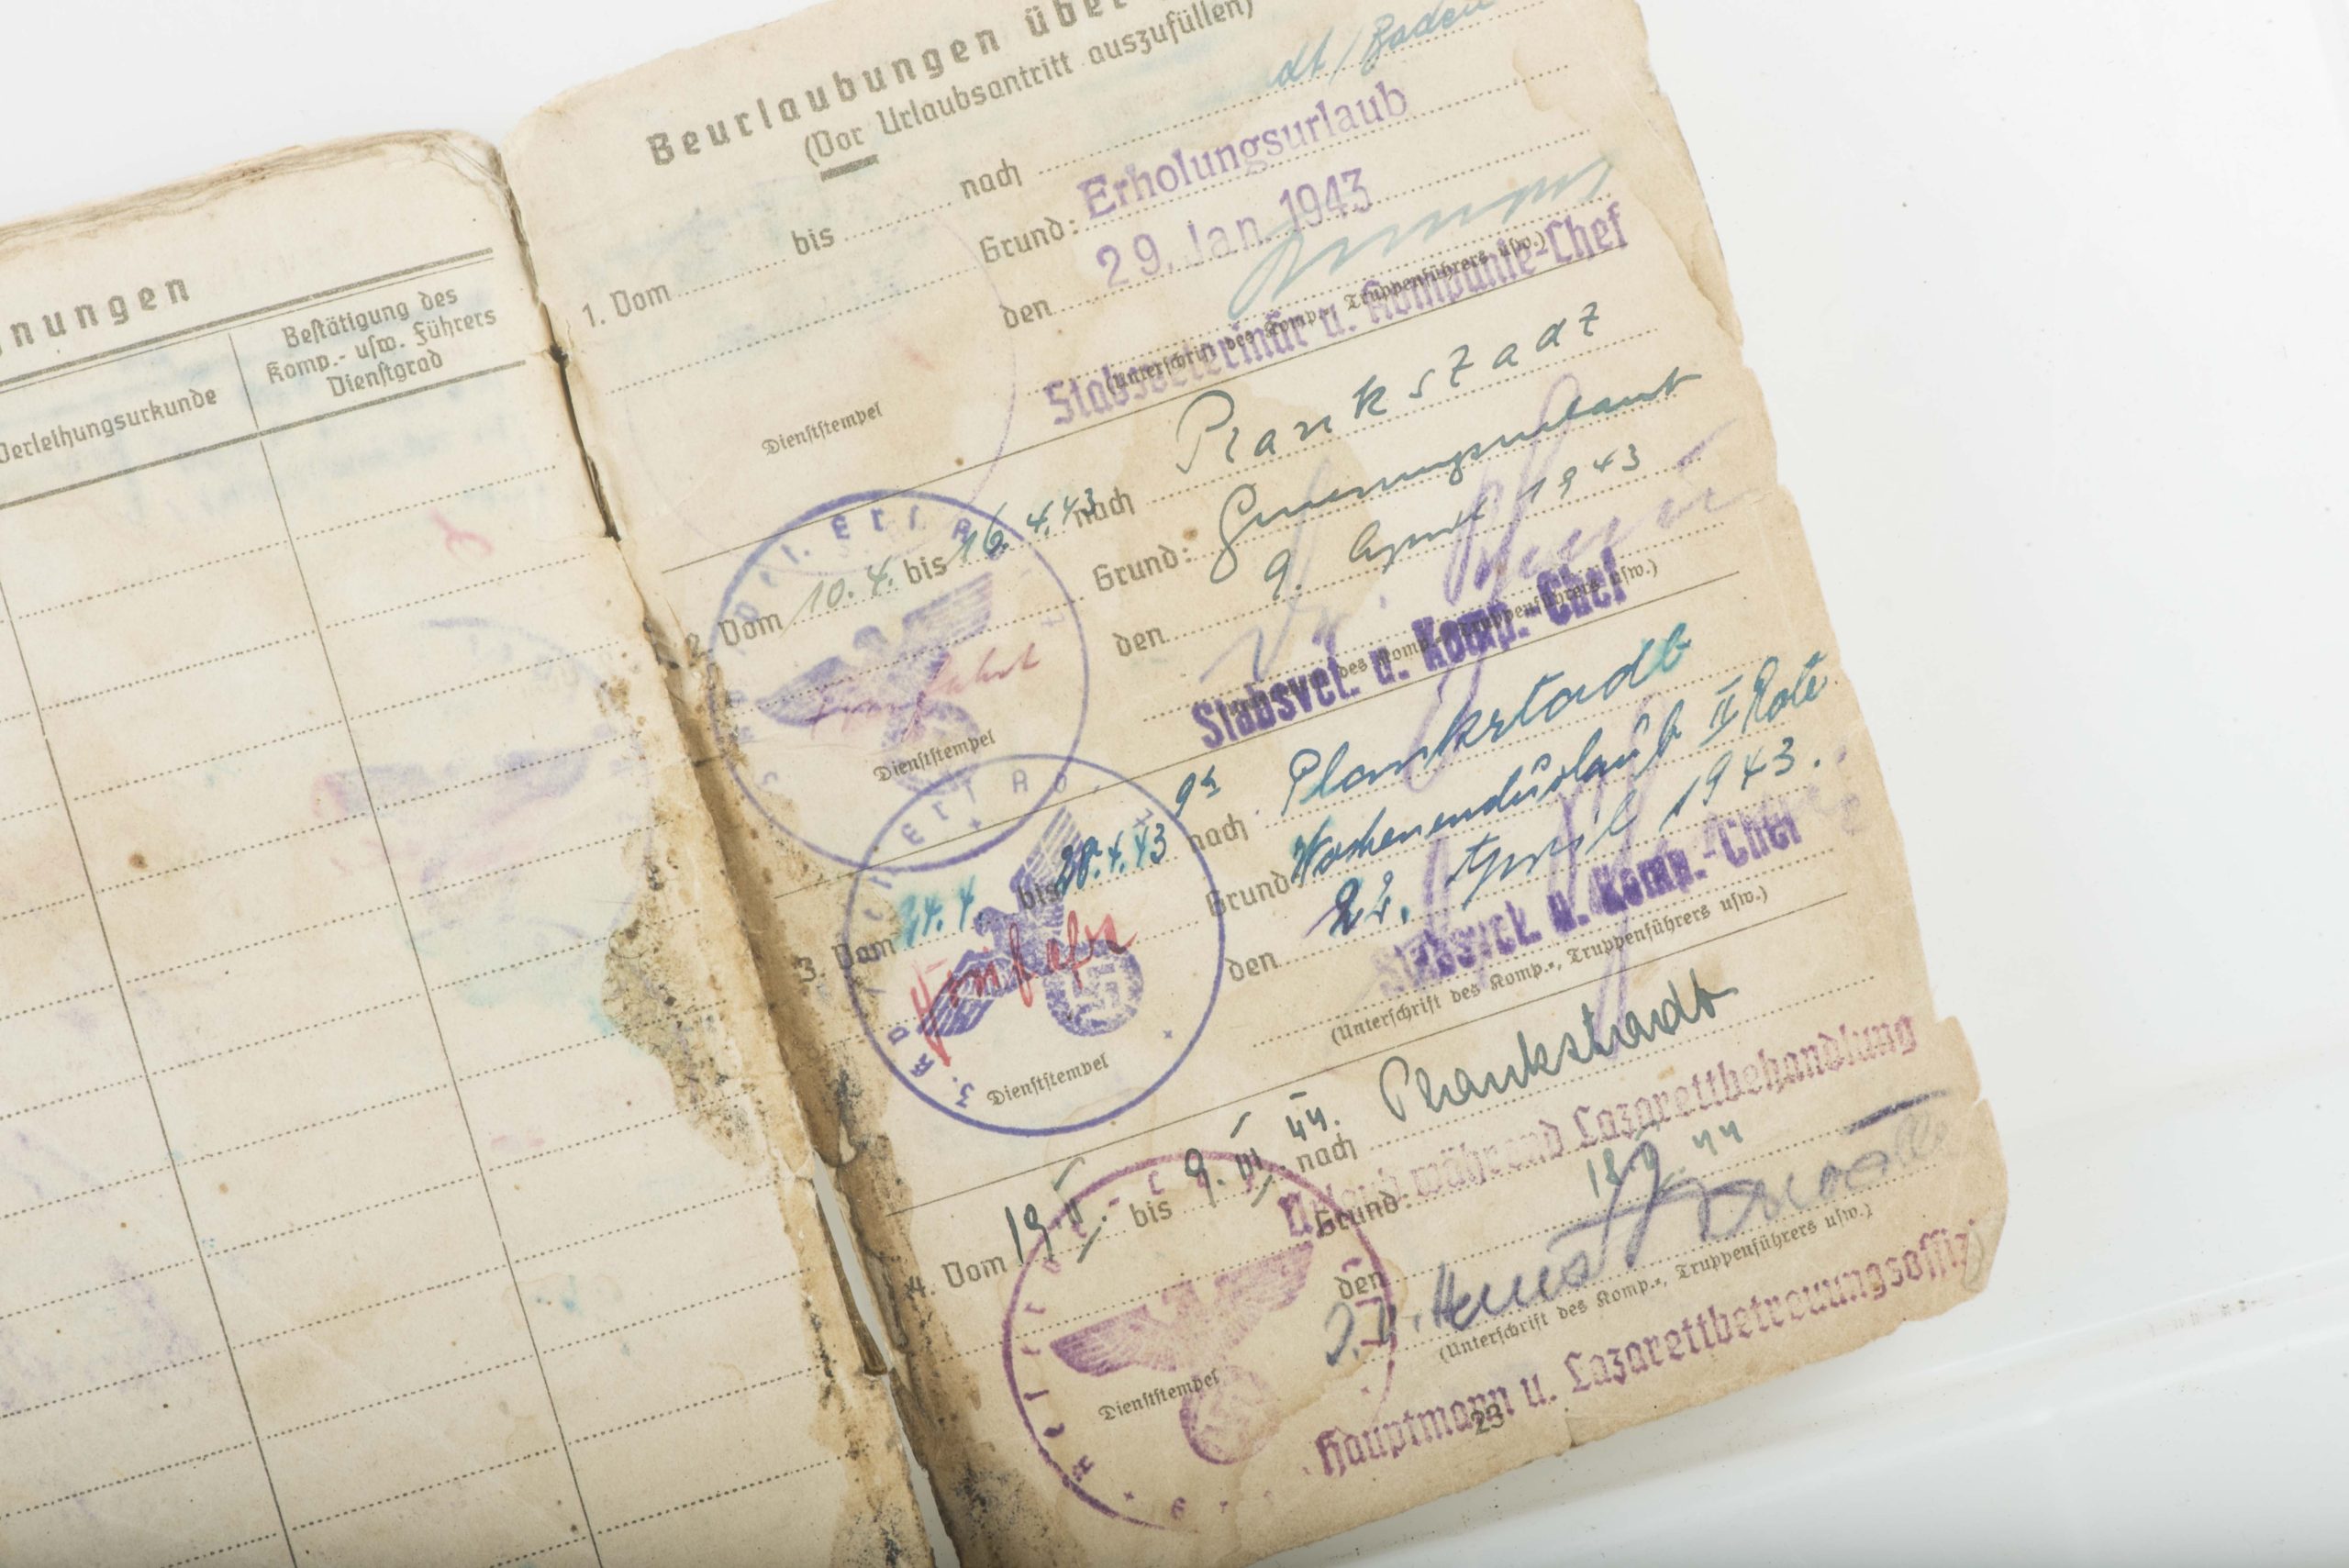 nungen
Verleihungsurkunde
Bestätigung des
Komp.- usw. Führers
Dienstgrad
Beurlaubungen über
(Vor Urlaubsantritt auszufüllen)
1. Vom bis nach dt / Baden
Grund: Erholungsurlaub
den 29. Jan. 1943
(Unterschrift des Komp.-, Truppenführers usw.)
Stabsveterinär u. Kompanie-Chef
Dienststempel
2. Vom 10.4. bis 16.4.43 nach Plankstadt
Grund:
den 9. April 1943
(Unterschrift des Komp.-, Truppenführers usw.)
Stabsvet. u. Komp.-Chef
Dienststempel
3. Vom 24.4. bis 28.4.43 nach Plankstadt
Grund: Wochenendurlaub II Rate
den 22. April 1943.
Stabsvet. u. Komp.-Chef
(Unterschrift des Komp.-, Truppenführers usw.)
Dienststempel
4. Vom 19. II. bis 9. III. 44. nach Plankstadt
Grund: Urlaub während Lazarettbehandlung
den 44
(Unterschrift des Komp.-, Truppenführers usw.)
Hauptmann u. Lazarettbetreuungsoffiz
Dienststempel
23